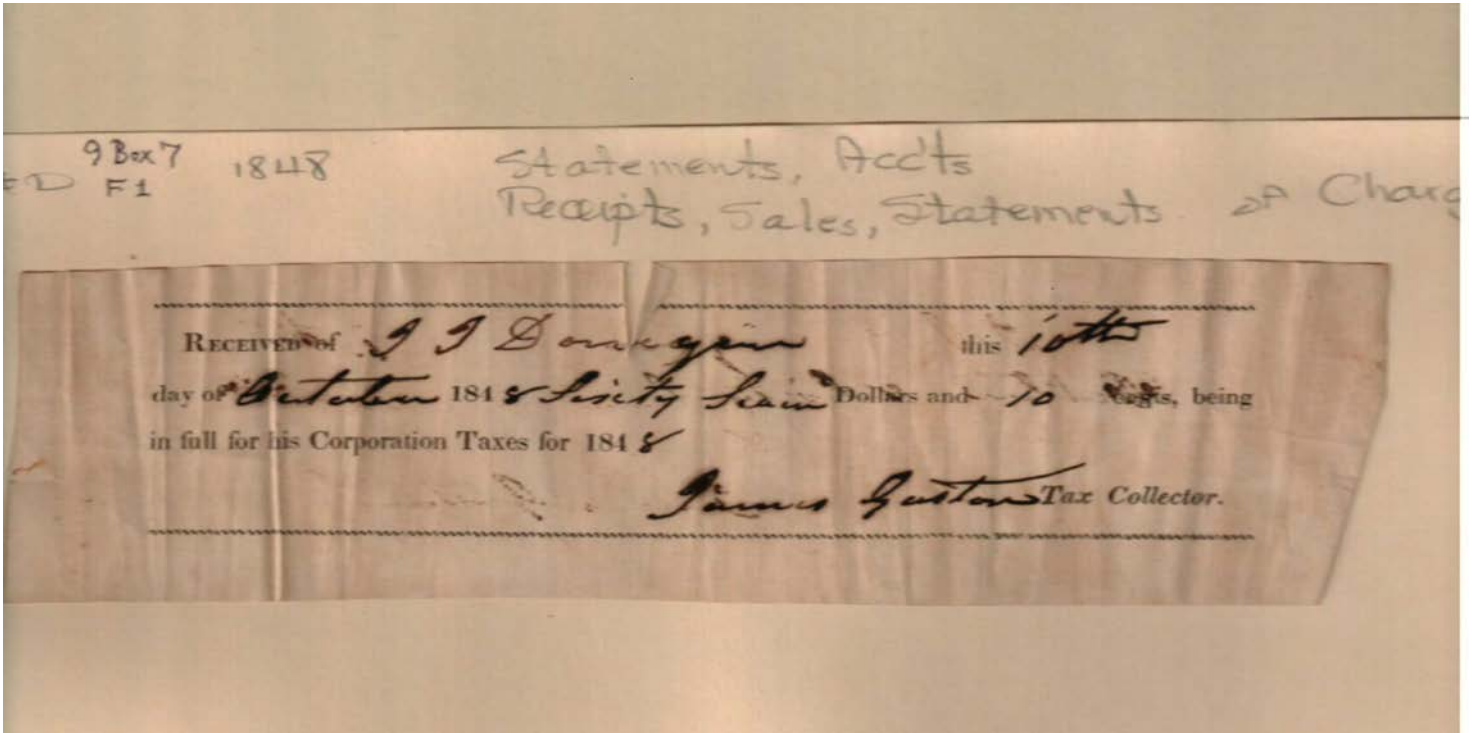 9 Box 7 1848 Statements, Acc'ts
ED F1 Receipts, Sales, Statements Charg
RECEIVED of J J Donegan this 10th
day of October 1848 Sixty Seven Dollars and 10 cents, being
in full for his Corporation Taxes for 1848
James Gaston Tax Collector.